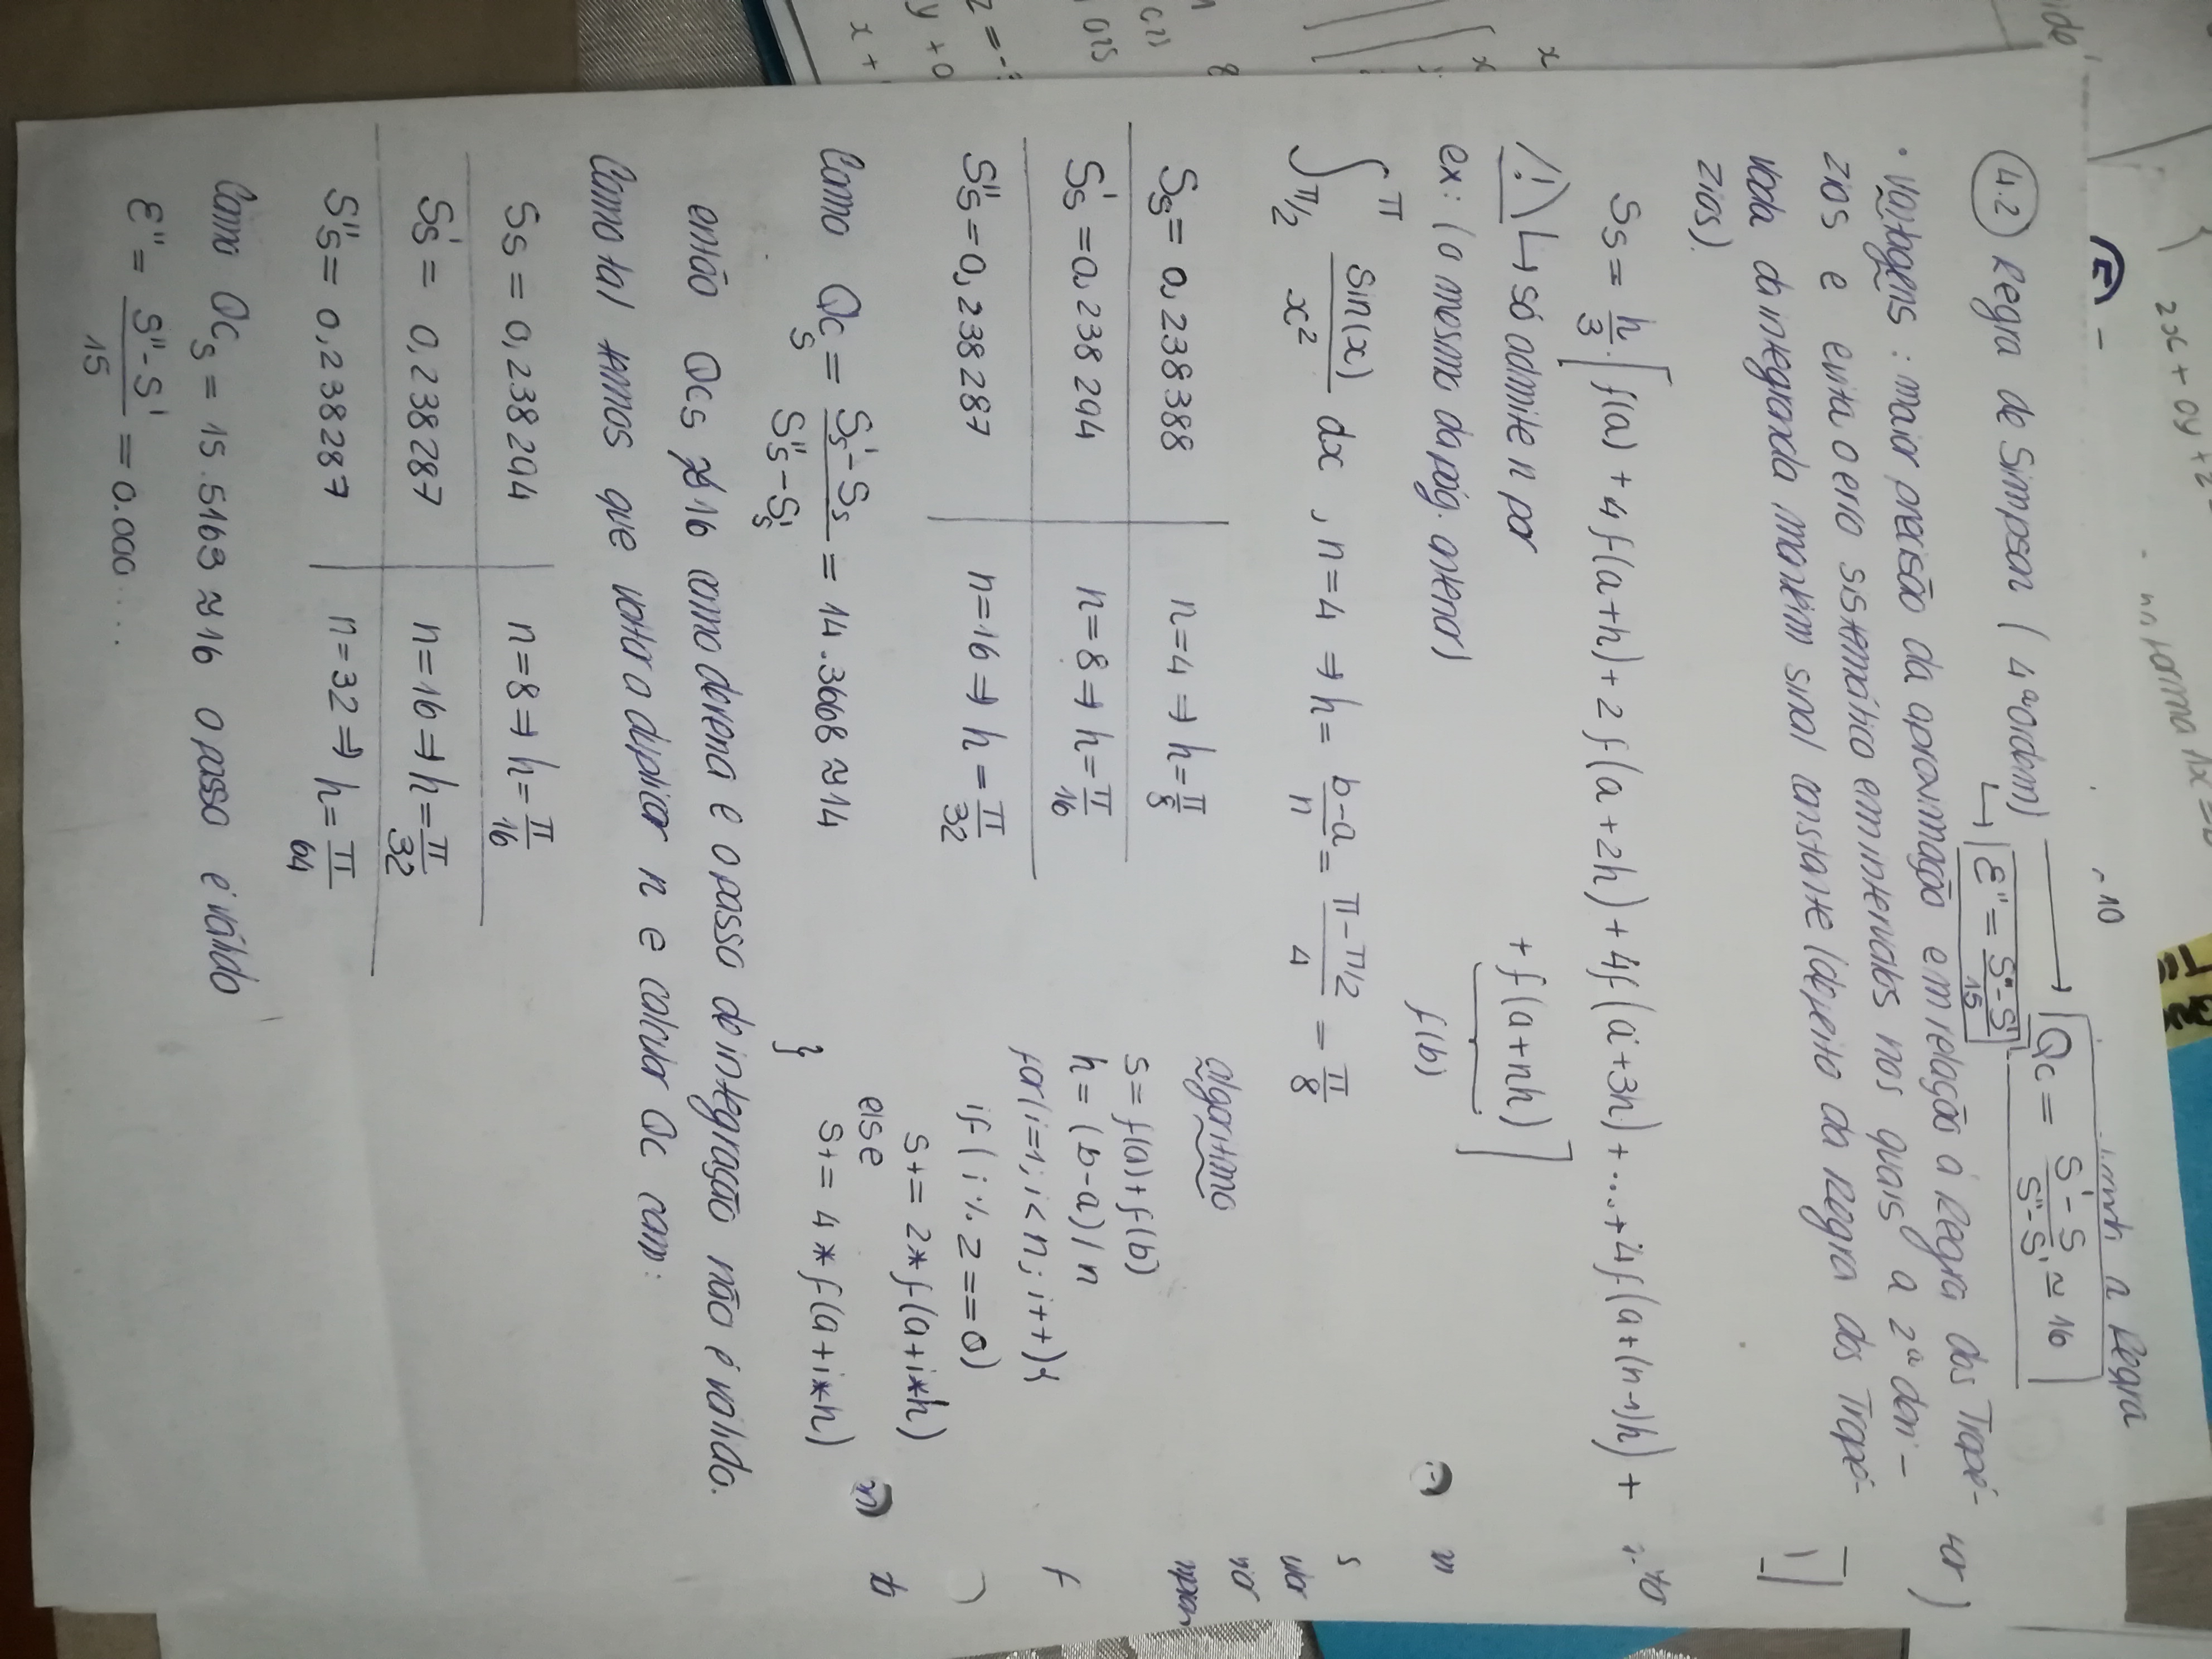 2x + 0y + z
na forma Ax =
5
10
a Regra
4.2 Regra de Simpson (4ª Ordem) → Qc = (S' - S)/(S'' - S') ≈ 16
↳ ε'' = (S'' - S')/15
• vantagens : maior precisão da aproximação em relação à Regra dos Trapé-
zios e evita o erro sistemático em intervalos nos quais a 2ª deri-
vada da integranda mantém sinal constante (defeito da Regra dos Trapé-
zios).
Ss = h/3 · [ f(a) + 4f(a+h) + 2f(a+2h) + 4f(a+3h) + ... + 4f(a+(n-1)h) +
+ f(a+nh) ]
f(b)
/!\ ↳ só admite n par
ex: (o mesmo da pág. anterior)
∫ π/2 π sin(x)/x² dx , n=4 ⇒ h = (b-a)/n = (π - π/2)/4 = π/8
Ss = 0,238388 | n=4 ⇒ h = π/8
Ss' = 0,238294 | n=8 ⇒ h = π/16
Ss'' = 0,238287 | n=16 ⇒ h = π/32
algoritmo
s = f(a) + f(b)
h = (b-a) / n
for(i=1; i<n; i++){
if (i % 2 == 0)
s += 2*f(a+i*h)
else
s += 4*f(a+i*h)
}
Como Qcs = (Ss' - Ss)/(Ss'' - Ss') = 14.3668 ≈ 14
então Qcs ≉ 16 como deveria e o passo de integração não é válido.
Como tal temos que voltar a duplicar n e calcular Qc com:
Ss = 0,238294 | n=8 ⇒ h = π/16
Ss' = 0,238287 | n=16 ⇒ h = π/32
Ss'' = 0,238287 | n=32 ⇒ h = π/64
Como Qcs = 15.5163 ≈ 16 o passo é válido
ε'' = (S'' - S')/15 = 0.000 ....